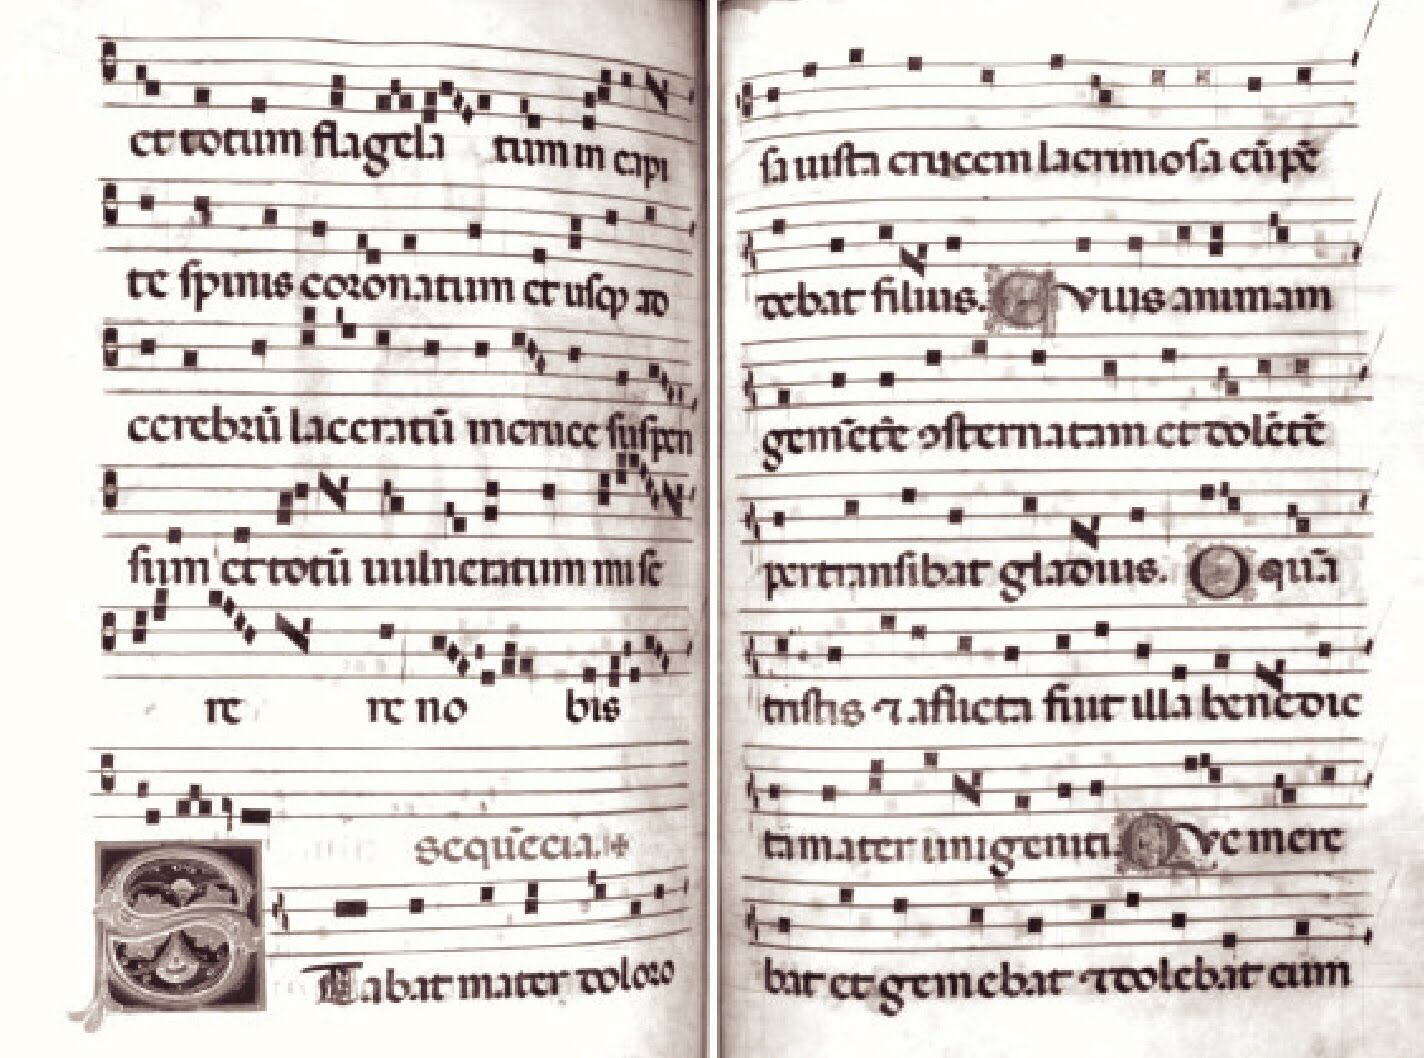 et totum flagela tum in capi
te spinis coronatum et usq ad
cerebrū laceratū in cruce suspen
sum et totū vulneratum mise
re re no bis
sequēcia.
Stabat mater doloro
sa iusta crucem lacrimosa cū pē
debat filius. Cuius animam
gemētē ꝯsternatam et dolētē
pertransibat gladius. O quā
tristis ⁊ aflicta fuit illa benedic
ta mater unigeniti. Que mere
bat et gemebat ⁊ dolebat cum